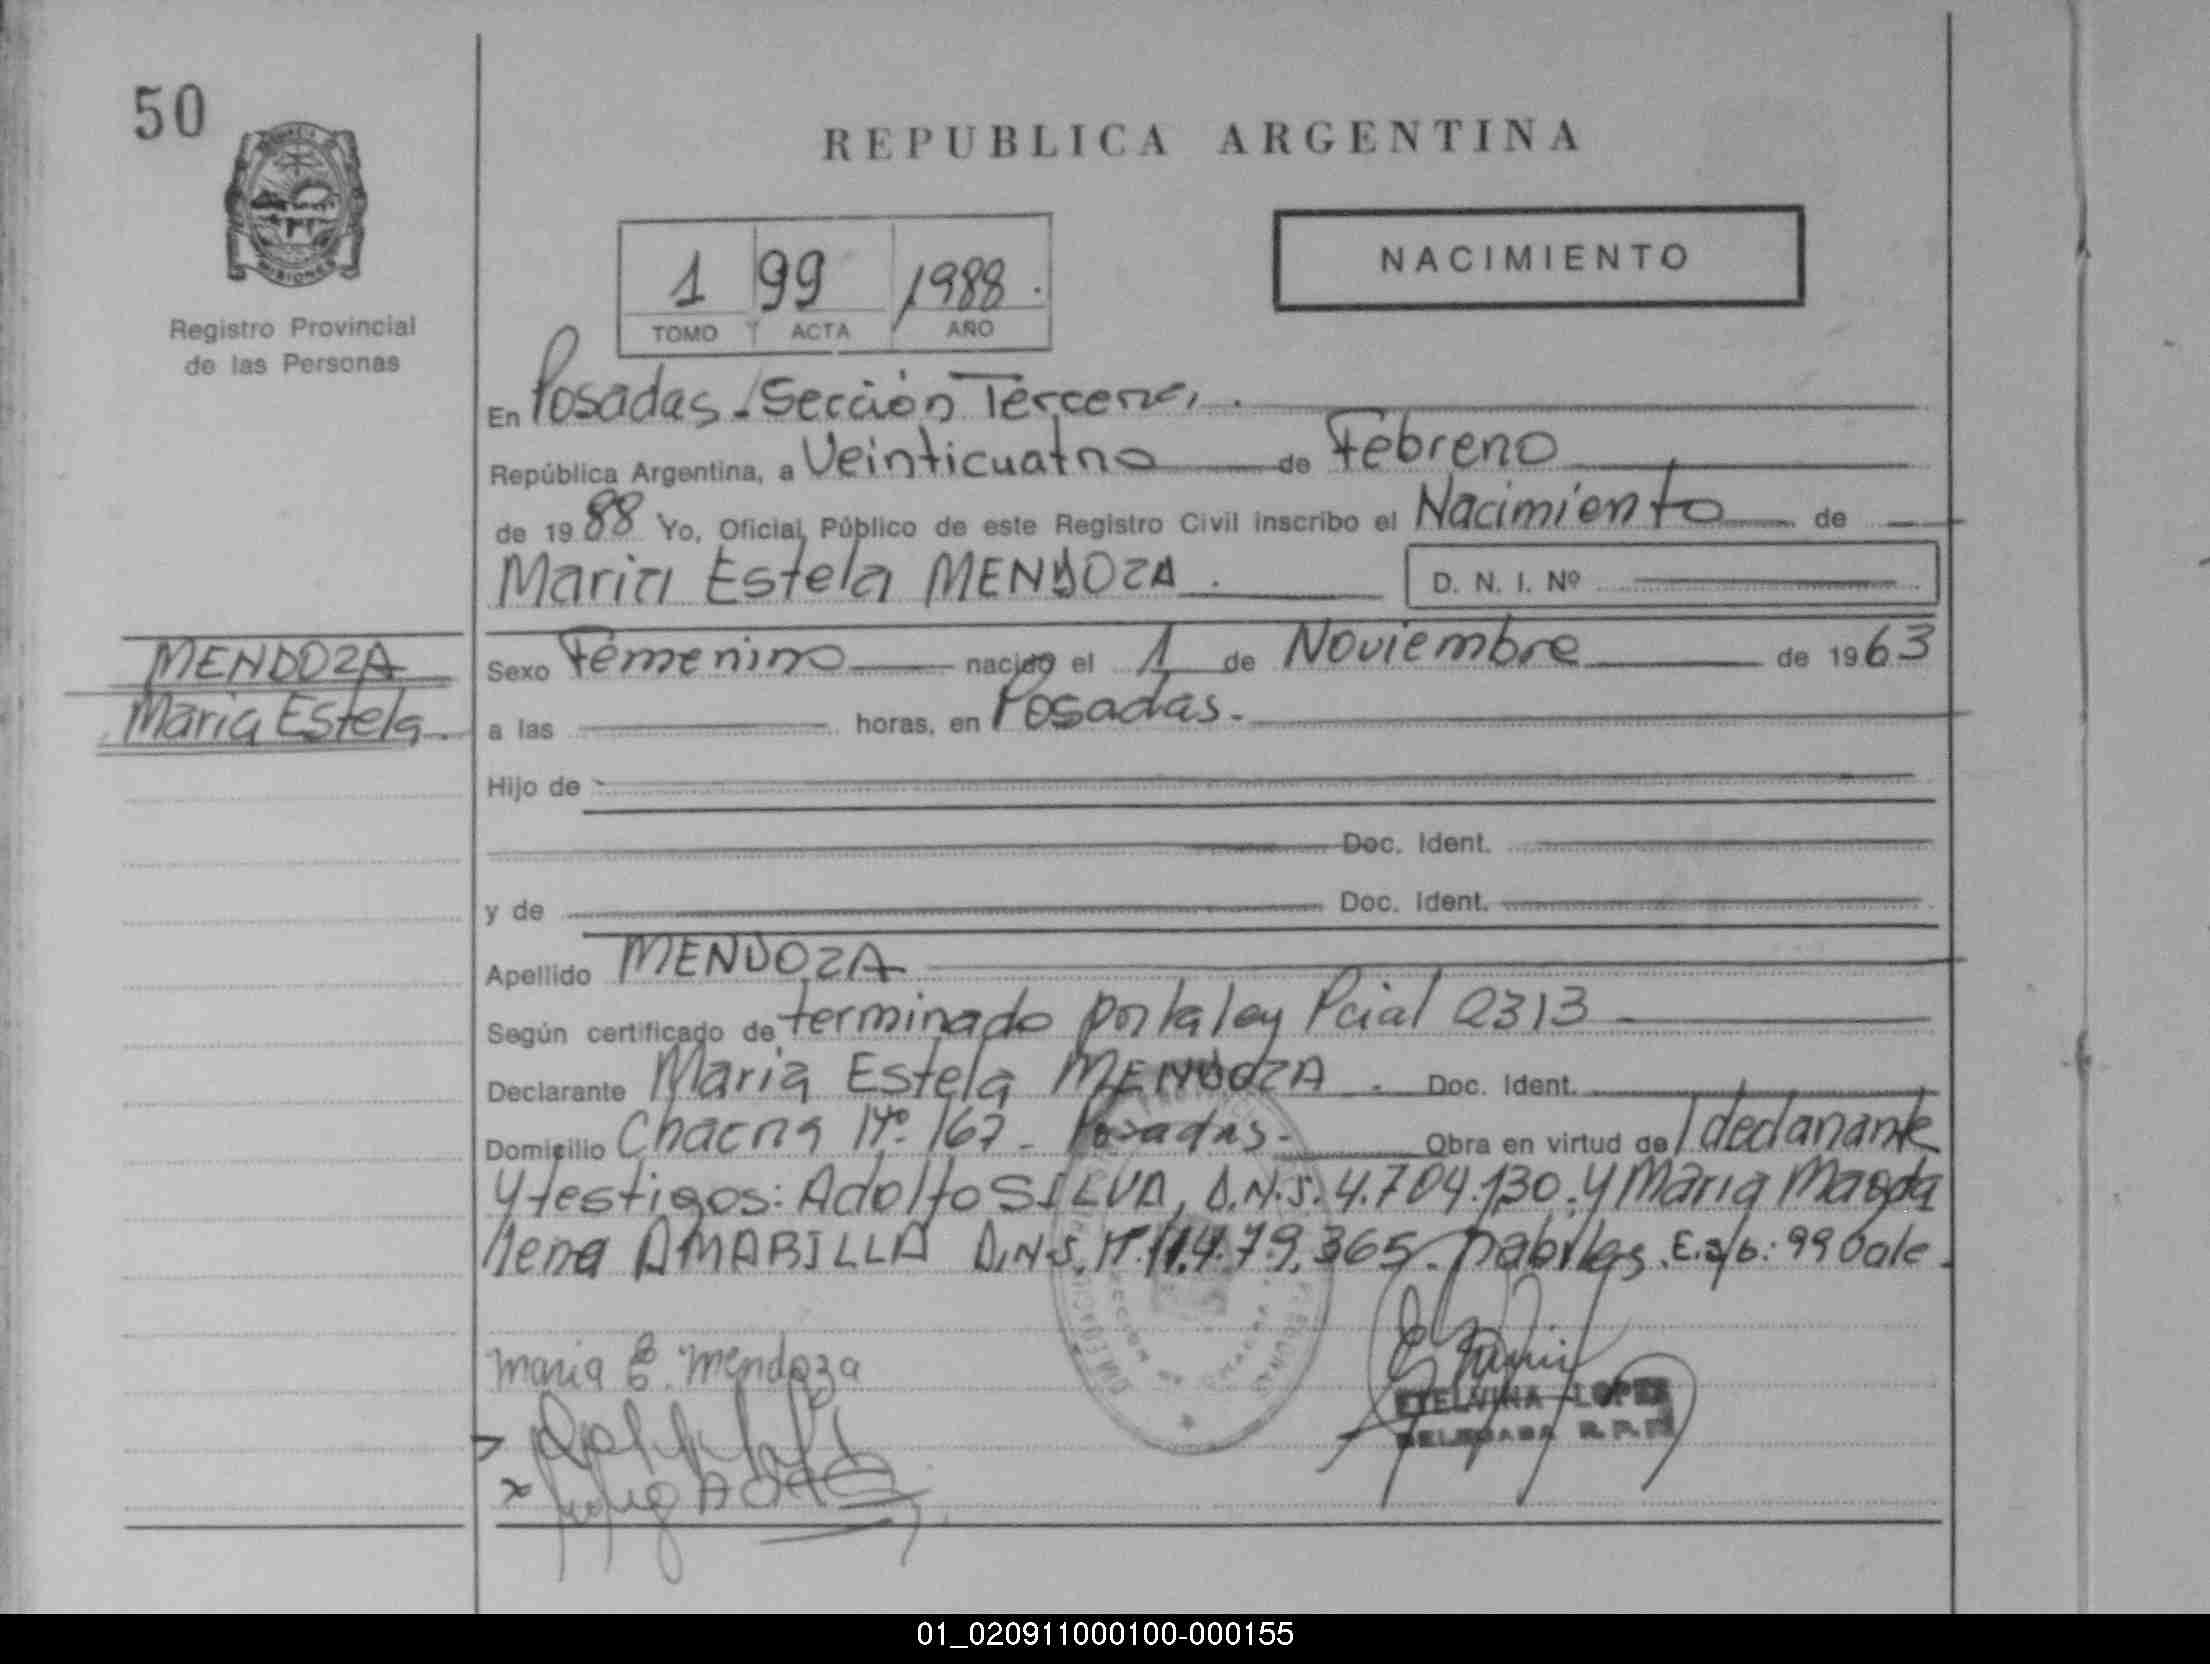 50
REPUBLICA ARGENTINA
MISIONES
Registro Provincial
de las Personas
1 99 1988.
TOMO Y ACTA AÑO
NACIMIENTO
En Posadas. Sección Tercera.
República Argentina, a Veinticuatro de Febrero
de 1988 Yo, Oficial Público de este Registro Civil inscribo el Nacimiento de
Maria Estela MENDOZA. D. N. I. Nº
MENDOZA
Maria Estela.
Sexo Femenino nacido el 1 de Noviembre de 1963
a las horas, en Posadas.
Hijo de
Doc. Ident.
y de Doc. Ident.
Apellido MENDOZA
Según certificado de terminado por la ley Pcial 2313
Declarante Maria Estela MENDOZA. Doc. Ident.
Domicilio Chacra Nº 167 - Posadas. Obra en virtud de / declarante
y testigos: Adolfo SILVA, D.N.I. 4.704.130. y Maria Magda
lena AMARILLA D.N.I. Nº 11.479.365. habiles. E.s/b: 99 Vale.
Maria E. Mendoza
ETELVINA LOPEZ
DELEGADA R.P.P.
01_020911000100-000155